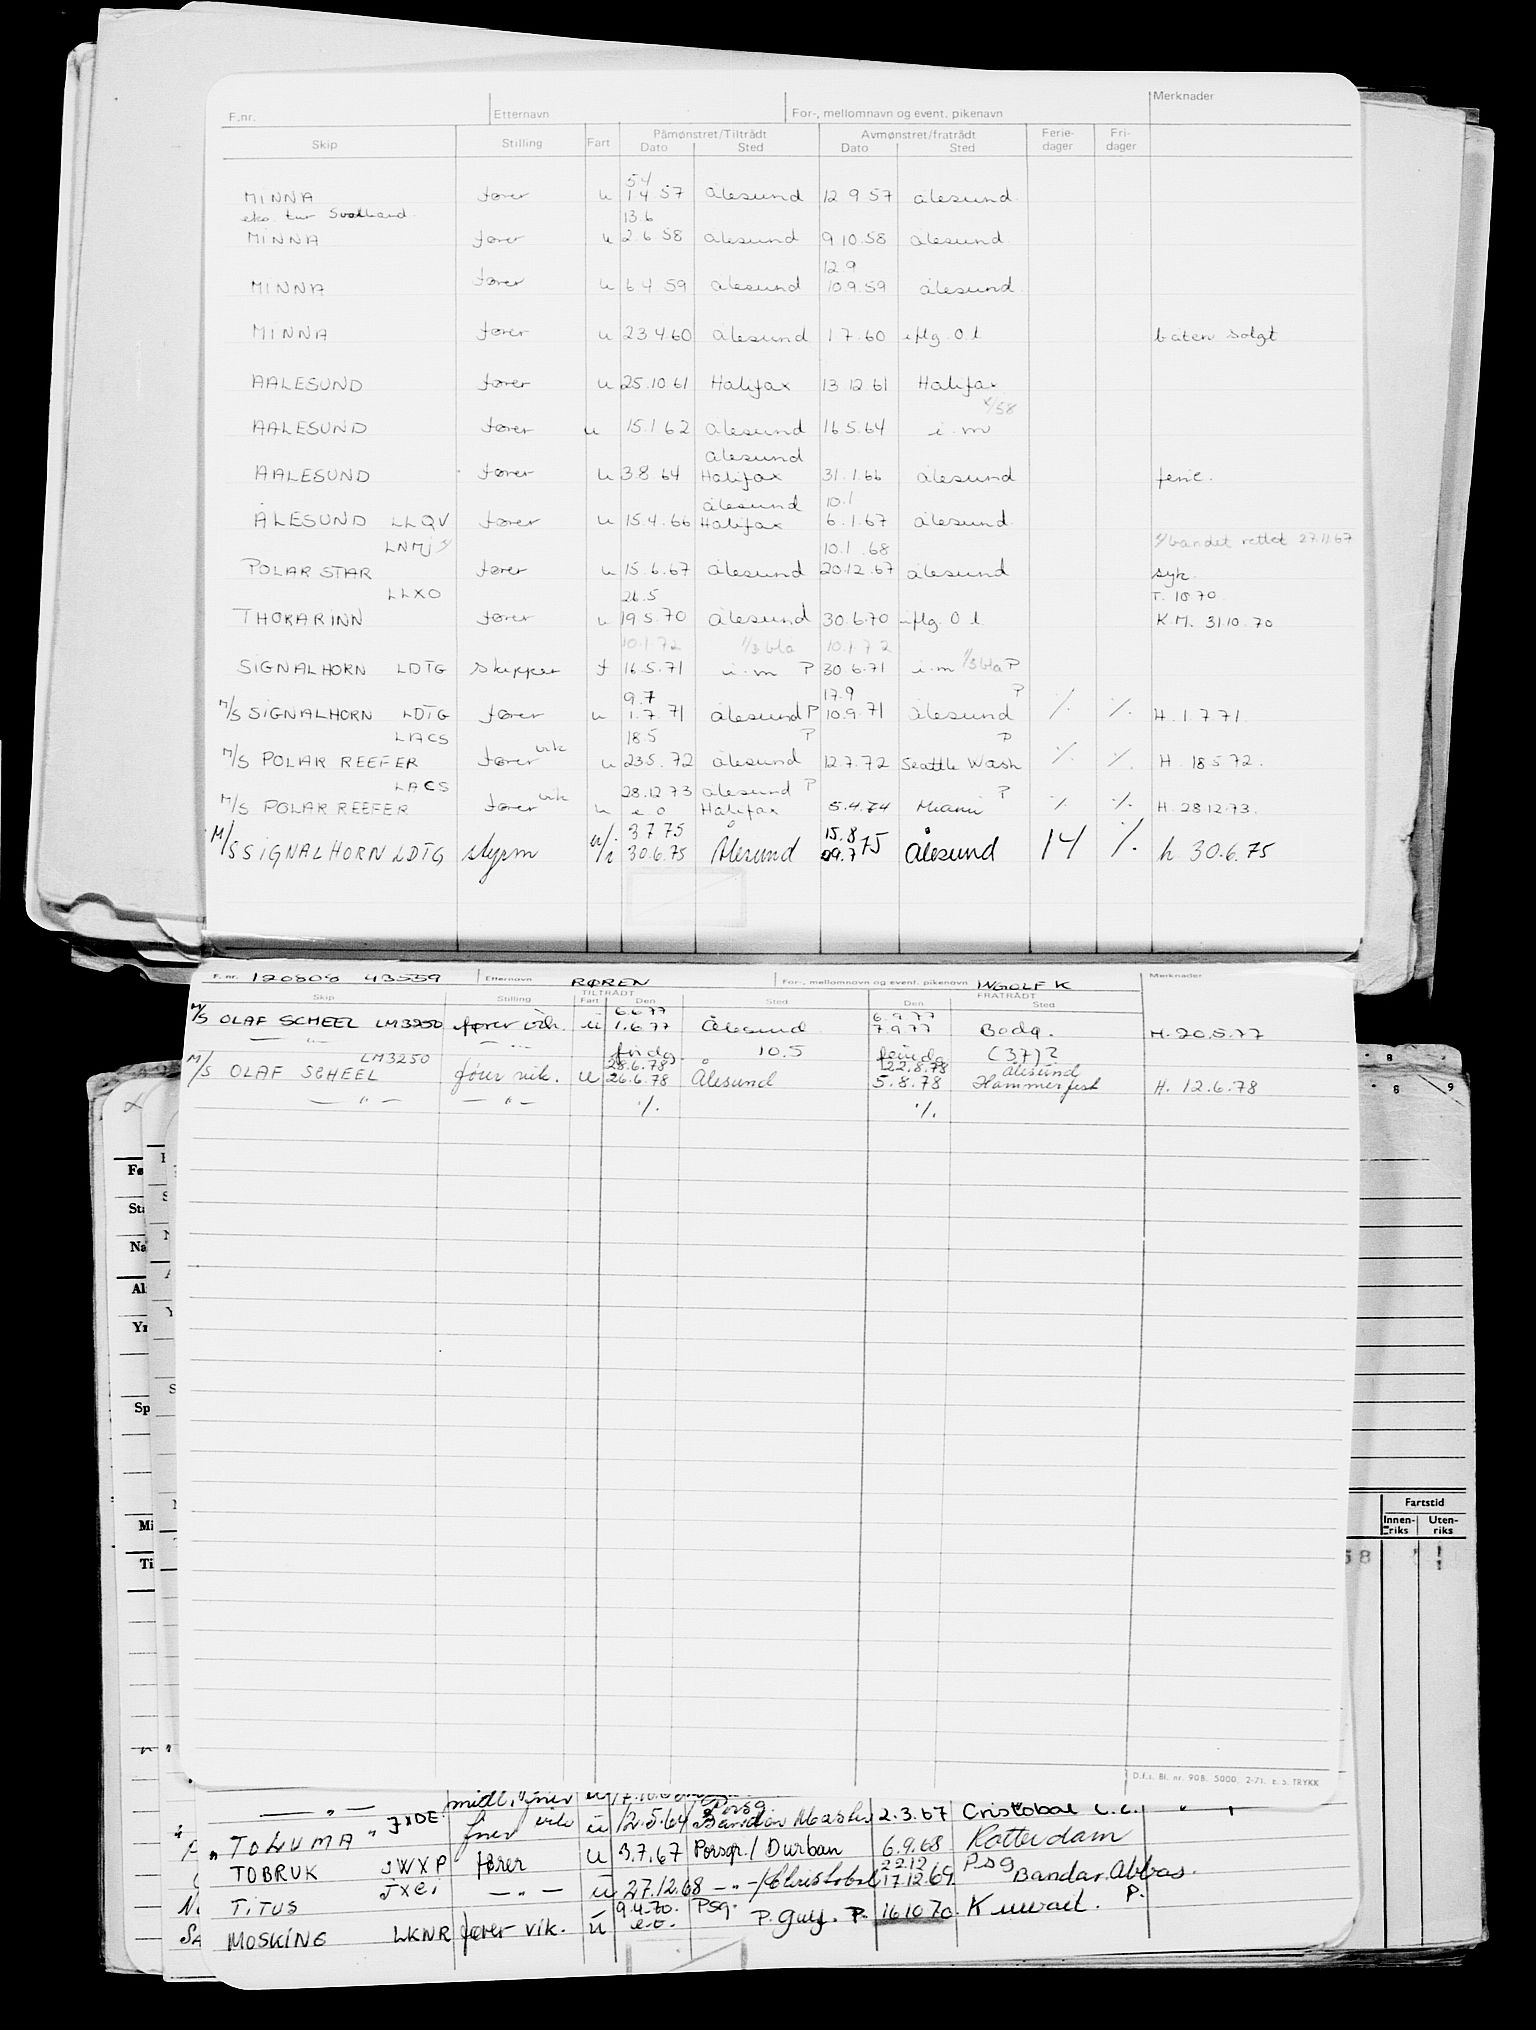 F.nr. Etternavn For-, mellomnavn og event. pikenavn Merknader
Påmønstret/Tiltrådt Avmønstret/fratrådt Ferie- Fri-
Skip Stilling Fart Dato Sted Dato Sted dager dager
5/4
MINNA fører u 1 4 57 Ålesund 12 9 57 Ålesund
eks. tur Svalbard 13.6
MINNA fører u 2.6.58 Ålesund 9 10.58 Ålesund
12.9
MINNA fører u 6 4 59 Ålesund 10.9.59 Ålesund
MINNA fører u 23 4.60 Ålesund 1 7.60 iflg. O.l båten solgt
AALESUND fører u 25.10.61 Halifax 13 12.61 Halifax
x/58
AALESUND fører u 15.1 62 Ålesund 16 5.64 i.m
Ålesund
AALESUND fører u 3.8.64 Halifax 31.1.66 Ålesund ferie.
Ålesund 10.1
ÅLESUND LLQV fører u 15.4.66 Halifax 6.1.67 Ålesund
LNMJ 10.1.68 båndet rettet 27.11.67
POLAR STAR fører u 15.6.67 Ålesund 20.12.67 Ålesund syk.
LLXO 26.5 T. 18 70
THORARINN fører u 19 5.70 Ålesund 30.6.70 iflg. O l K.M. 31.10.70
10.1.72 1/3 blå 10.1.72
SIGNALHORN LDTG skipper f 16.5.71 i.m P 30.6.71 i.m 1/3 blå P
9.7 17.9 P
M/S SIGNALHORN LDTG fører u 1.7.71 Ålesund P 10.9.71 Ålesund ./. ./. H. 1.7 71.
LACS 18.5 P P
M/S POLAR REEFER fører vik u 23.5.72 Ålesund 12.7.72 Seattle Wash ./. ./. H. 18.5.72.
LACS 28.12 73 Ålesund P P
M/S POLAR REEFER fører vik u e o Halifax 5.4.74 Miami ./. ./. H. 28.12.73.
3 7 75 15.8
M/S SIGNALHORN LDTG styrm u/i 30.6.75 Ålesund 09.7 75 Ålesund 14 ./. h 30.6.75
F. nr. 120808 43559 Etternavn RØREN For-, mellomnavn og event. pikenavn INGOLF K Merknader
TILTRÅDT FRATRÅDT
Skip Stilling Fart Den Sted Den Sted
6.6.77 6.9.77
M/S OLAF SCHEEL LM3250 fører vik. u 1.6.77 Ålesund 7.9.77 Bodø. H. 20.5.77
— " — — " — fridg. 10.5 feriedg (37)?
LM3250 28.6.78 22.8.78 Ålesund
M/S OLAF SCHEEL fører vik. u 26.6.78 Ålesund 5.8.78 Hammerfest H. 12.6.78
— " — — " — ./. ./.
Fø
Sta
Na
Al
Yr
Sp
Mi
Ti
8
8 9
Fartstid
Innen- Uten-
riks riks
58
D.f.s. Bl. nr. 90B. 5000. 2-71. E.S. TRYKK
— " — midl. fører u
" TOLUMA " JXDE fører vik u 12.5.64 Porsg 2.3.67 Cristobal C.C.
TOBRUK JWXP fører u 3.7.67 Porsgr./ Durban 6.9.68 Rotterdam
22.12 Psg
TITUS JXCI — " — u 27.12.68 — " — /Christobal 17.12.69 Bandar Abbas.
9.4.70. Psg. P.
MOSKING LKNR fører vik. u e.o. P. Gulf. P. 16.10 70. Kuwait.